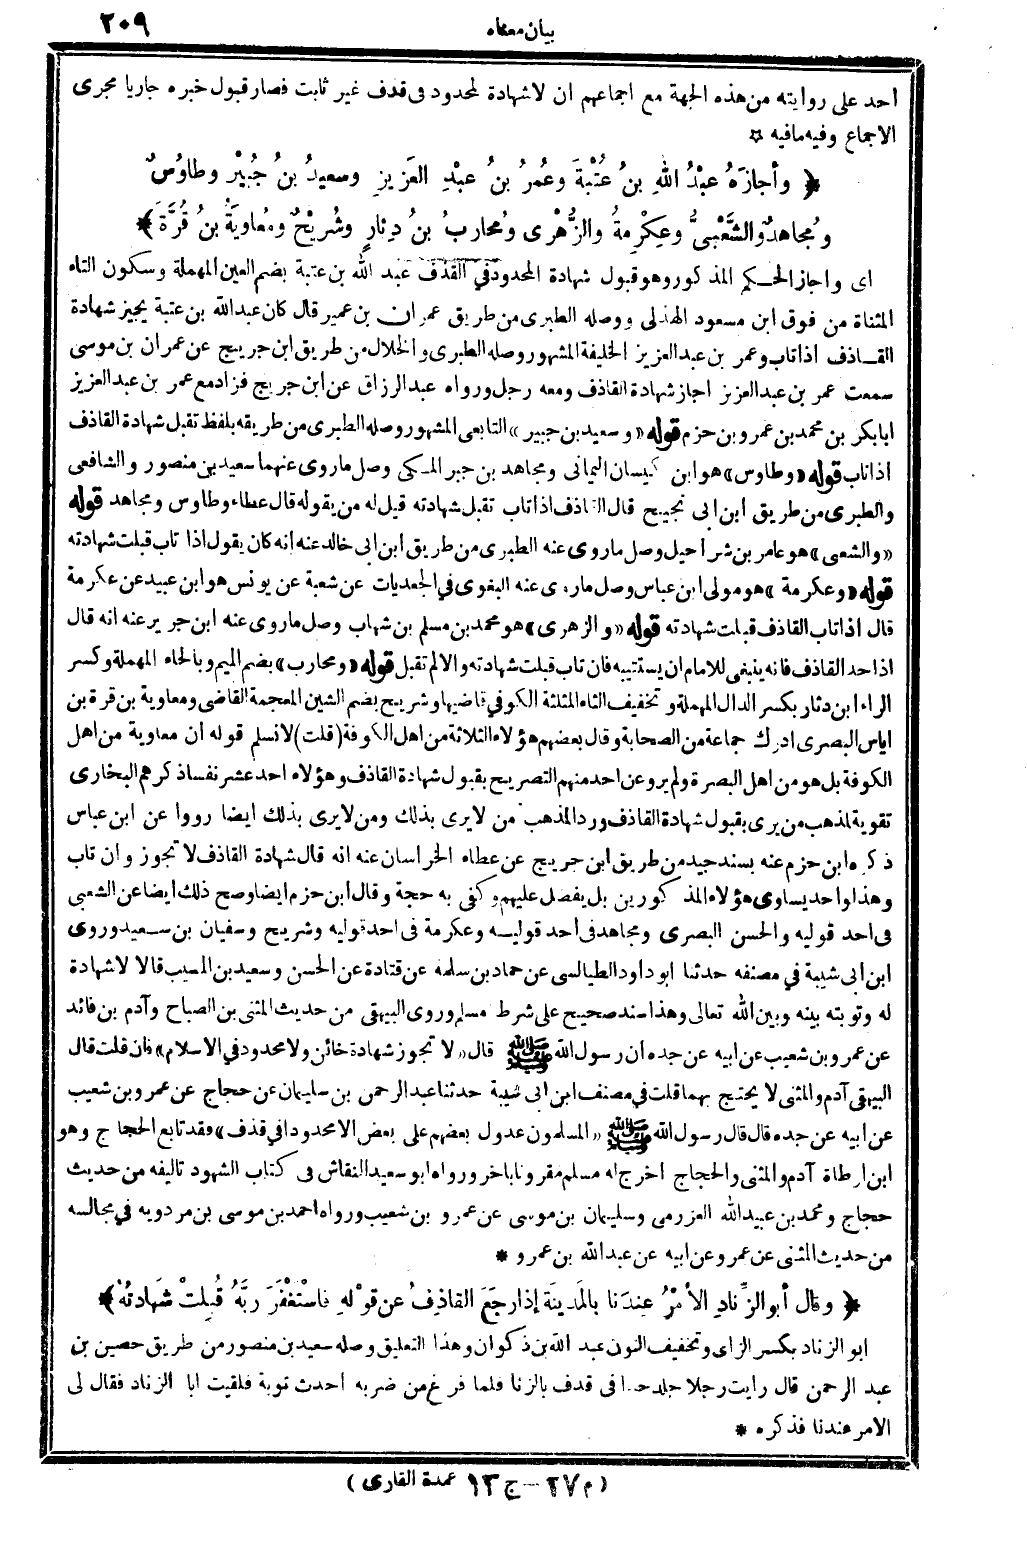 ٢٠٩
بيان معناه
أحد على روايته من هذه الجهة مع اجماعهم ان لا شهادة لمحدود فى قذف غير ثابت فصار قبول خبره جاريا مجرى
الاجماع وفيه مافيه ✡
﴿ وأجازَهُ عبْدُ اللهِ بنُ عُتْبَةَ وعُمَرُ بنُ عبْدِ العَزِيزِ وسعيدُ بنُ جُبيْرٍ وطاوُسٌ
ومُجاهِدٌ والشَّعْبىُّ وعِكْرِمةُ والزُّهْرِى ومُحارِبُ بنُ دِثارٍ وشُريْحٌ ومُعاوِيَةُ بنُ قُرَّةَ ﴾ *
اى واجاز الحكم المذكور وهو قبول شهادة المحدود في القذف عبد الله بن عتبة بضم العين المهملة وسكون التاء
المثناة من فوق ابن مسعود الهذلى ووصله الطبرى من طريق عمران بن عمير قال كان عبدالله بن عتبة يجيز شهادة
القـاذف اذا تاب وعمر بن عبدالعزيز الخليفة المشهور وصله الطبرى والخلال من طريق ابن جريج عن عمران بن موسى
سمعت عمر بن عبدالعزيز اجاز شهادة القاذف ومعه رجل ورواه عبدالرزاق عن ابن جريج فزاد مع عمر بن عبدالعزيز
ابابكر بن محمد بن عمرو بن حزم قوله «وسعيد بن جبير» التابعى المشهور وصله الطبرى من طريقه بلفظ تقبل شهادة القاذف
اذا تاب قوله «وطاوس» هو ابن كيسان اليمانى ومجاهد بن جبر المكى وصل ماروى عنهما سعيد بن منصور والشافعى
والطبرى من طريق ابن ابى نجيح قال القاذف اذا تاب تقبل شهادته قيل له من يقوله قال عطاء وطاوس ومجاهد قوله
«والشعبى» هو عامر بن شراحيل وصل ماروى عنه الطبرى من طريق ابن ابى خالد عنه انه كان يقول اذا تاب قبلت شهادته
قوله «وعكرمة» هو مولى ابن عباس وصل ماروى عنه البغوى في الجعديات عن شعبة عن يونس هو ابن عبيد عن عكرمة
قال اذا تاب القاذف قبلت شهادته قوله «والزهرى» هو محمد بن مسلم بن شهاب وصل ماروى عنه ابن جرير عنه انه قال
اذا حد القاذف فانه ينبغى للامام ان يستتيبه فان تاب قبلت شهادته والا لم تقبل قوله «ومحارب» بضم الميم وبالحاء المهملة وكسر
الراء ابن دثار بكسر الدال المهملة وتخفيف الثاء المثلثة الكوفي قاضيها وشريح بضم الشين المعجمة القاضى ومعاوية بن قرة بن
اياس البصرى ادرك جماعة من الصحابة وقال بعضهم هؤلاء الثلاثة من اهل الكوفة (قلت) لانسلم قوله ان معاوية من اهل
الكوفة بل هو من اهل البصرة ولم يرو عن احد منهم التصريح بقبول شهادة القاذف وهؤلاء احد عشر نفسا ذكرهم البخارى
تقوية لمذهب من يرى بقبول شهادة القاذف وردا لمذهب من لا يرى بذلك ومن لا يرى بذلك ايضا رووا عن ابن عباس
ذكره ابن حزم عنه بسند جيد من طريق ابن جريج عن عطاء الخراسان عنه انه قال شهادة القاذف لا تجوز وان تاب
وهذا واحد يساوى هؤلاء المذكورين بل يفضل عليهم وكفى به حجة وقال ابن حزم ايضا وصح ذلك ايضا عن الشعبى
فى احد قوليه والحسن البصرى ومجاهد فى احد قوليـه وعكرمة فى احد قوليه وشريح وسفيان بن سـعيد وروى
ابن ابى شيبة في مصنفه حدثنا ابو داود الطيالسى عن حماد بن سلمة عن قتادة عن الحسن وسعيد بن المسيب قالا لا شهادة
له وتوبته بينه وبين الله تعالى وهذا سند صحيح على شرط مسلم وروى البيهقى من حديث المثنى بن الصباح وآدم بن فائد
عن عمرو بن شعيب عن ابيه عن جده ان رسول الله ﷺ قال «لا تجوز شهادة خائن ولا محدود في الاسلام» فان قلت قال
البيهقى آدم والمثنى لا يحتج بهما قلت في مصنف ابن ابى شيبة حدثنا عبدالرحمن بن سليمان عن حجاج عن عمرو بن شعيب
عن ابيه عن جده قال قال رسول الله ﷺ «المسلمون عدول بعضهم على بعض الا محدودا في قذف» فقد تابع الحجاج وهو
ابن ارطاة آدم والمثنى والحجاج اخرج له مسلم مقرونا باخر ورواه ابو سعيد النقاش فى كتاب الشهود تاليفه من حديث
حجاج ومحمد بن عبيدالله العزرمى وسليمان بن موسى عن عمرو بن شعيب ورواه احمد بن موسى بن مردويه في مجالسه
من حديث المثنى عن عمرو عن ابيه عن عبدالله بن عمرو *
﴿ وقال أبوالزِّنادِ الأمْرُ عِندَنا بالمَدِينَةِ إذا رجَعَ القاذِفُ عن قوْلِهِ فاسْتَغْفَرَ ربَّهُ قُبِلَتْ شَهَادتُهُ ﴾ *
ابو الزناد بكسر الزاى وتخفيف النون عبد الله بن ذكوان وهذا التعليق وصله سعيد بن منصور من طريق حصين بن
عبد الرحمن قال رايت رجلا جلد حدا فى قذف بالزنا فلما فرغ من ضربه احدث توبة فلقيت ابا الزناد فقال لى
الامر عندنا فذكره *
(م ٢٧ – ج ١٣ عمدة القارى)